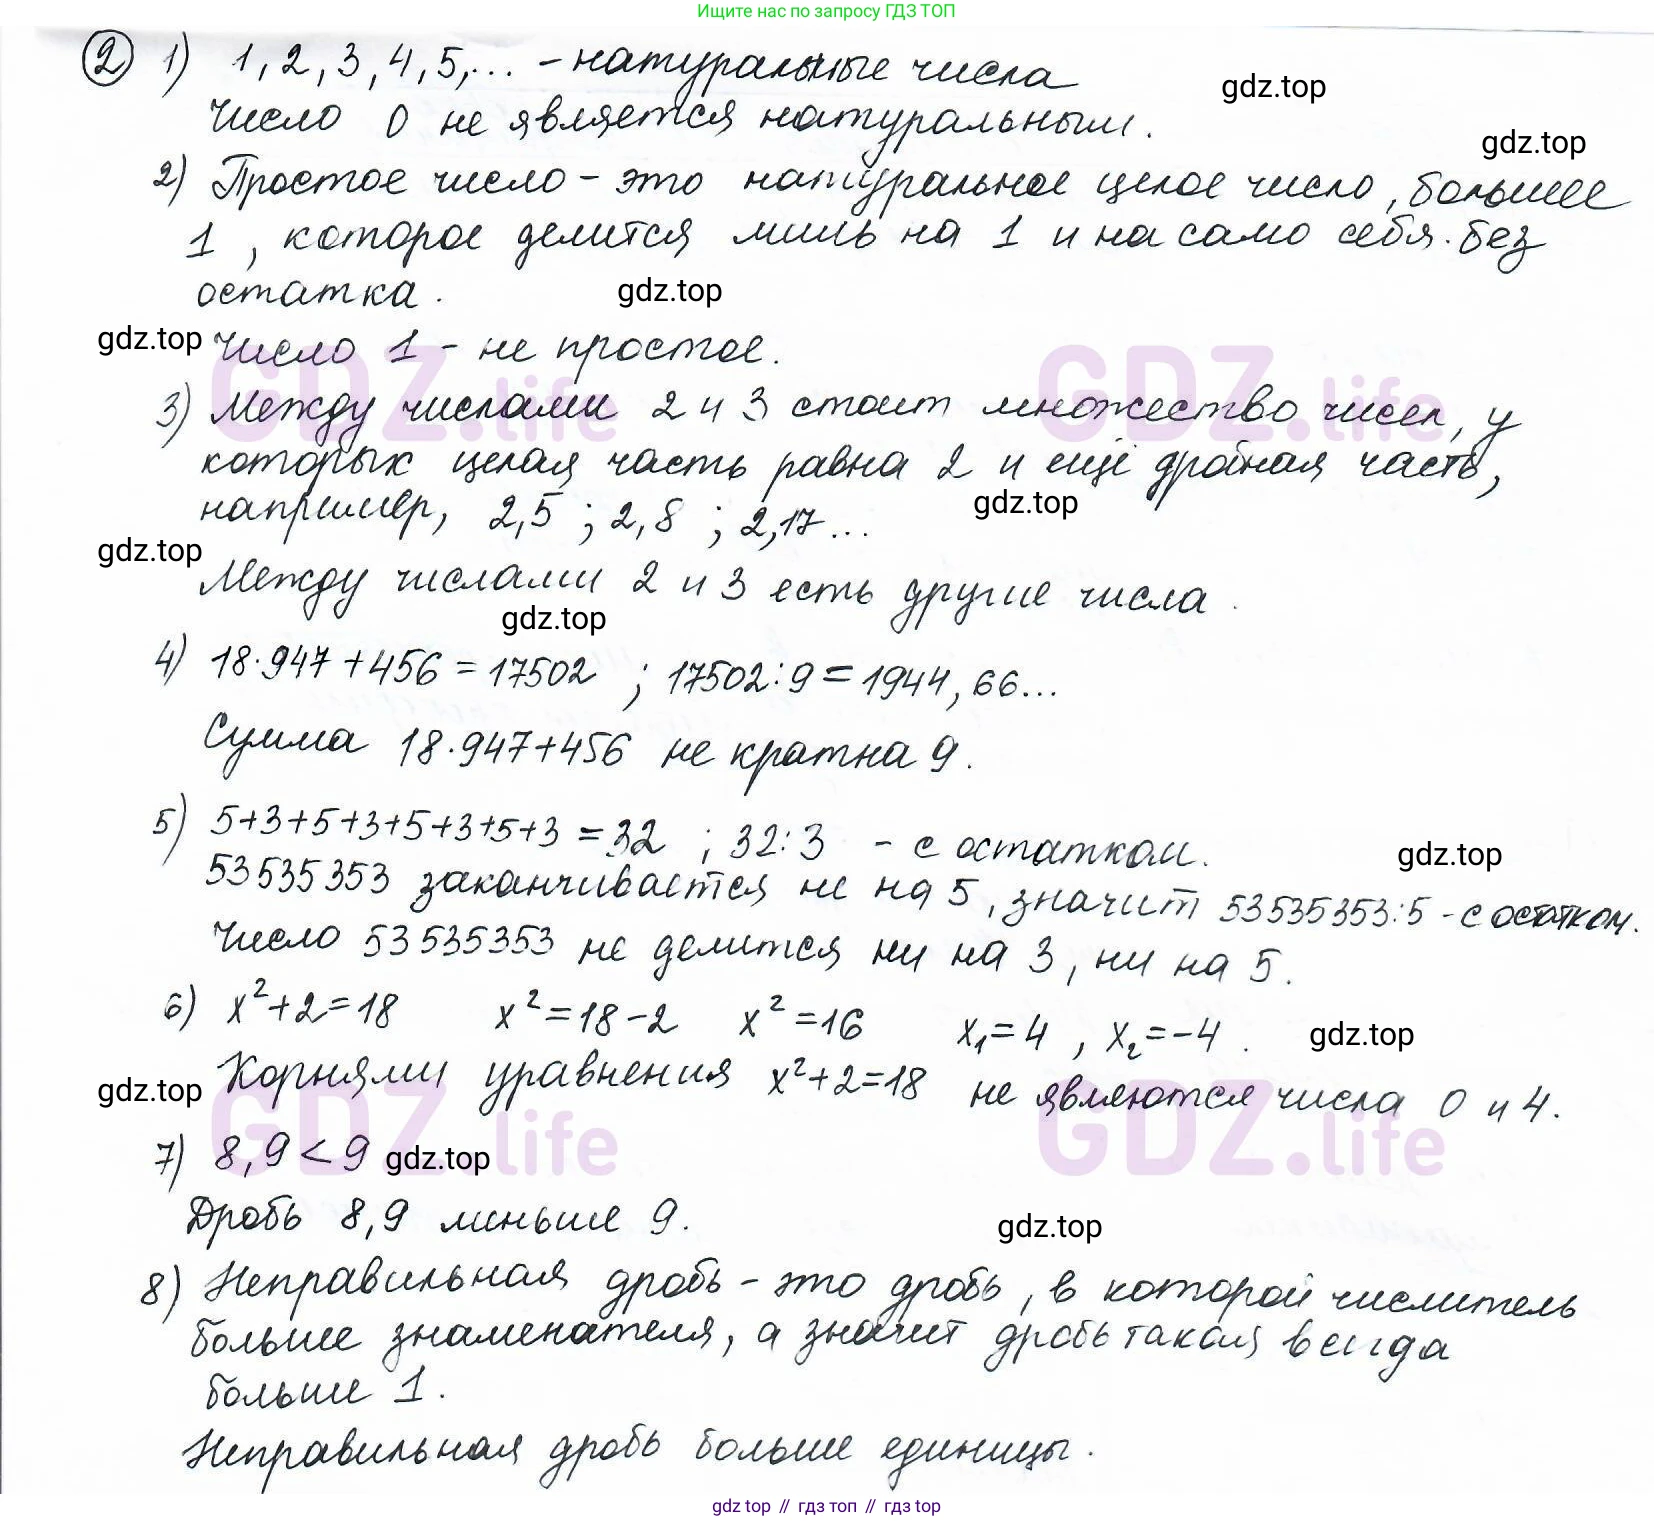 Ищите нас по запросу ГДЗ ТОП
2 1) 1, 2, 3, 4, 5, ... - натуральные числа
gdz.top
Число 0 не является натуральным.
gdz.top
2) Простое число - это натуральное целое число, большее
1, которое делится лишь на 1 и на само себя без
остатка.
gdz.top
gdz.top
Число 1 - не простое.
GDZ.life
GDZ.life
3) Между числами 2 и 3 стоит множество чисел, у
которых целая часть равна 2 и ещё дробная часть,
например, 2,5 ; 2,8 ; 2,17...
gdz.top
gdz.top
Между числами 2 и 3 есть другие числа.
gdz.top
4) 18·947+456=17502 ; 17502:9=1944,66...
Сумма 18·947+456 не кратна 9.
5) 5+3+5+3+5+3+5+3=32 ; 32:3 - с остатком.
gdz.top
53535353 заканчивается не на 5, значит 53535353:5 - с остатком.
Число 53535353 не делится ни на 3, ни на 5.
6) x²+2=18 x²=18-2 x²=16 x₁=4, x₂=-4.
gdz.top
gdz.top
Корнями уравнения x²+2=18 не являются числа 0 и 4.
GDZ.life
GDZ.life
7) 8,9<9
gdz.top
Дробь 8,9 меньше 9.
gdz.top
8) Неправильная дробь - это дробь, в которой числитель
больше знаменателя, а значит дробь такая всегда
больше 1.
Неправильная дробь больше единицы.
gdz top // гдз топ // гдз top